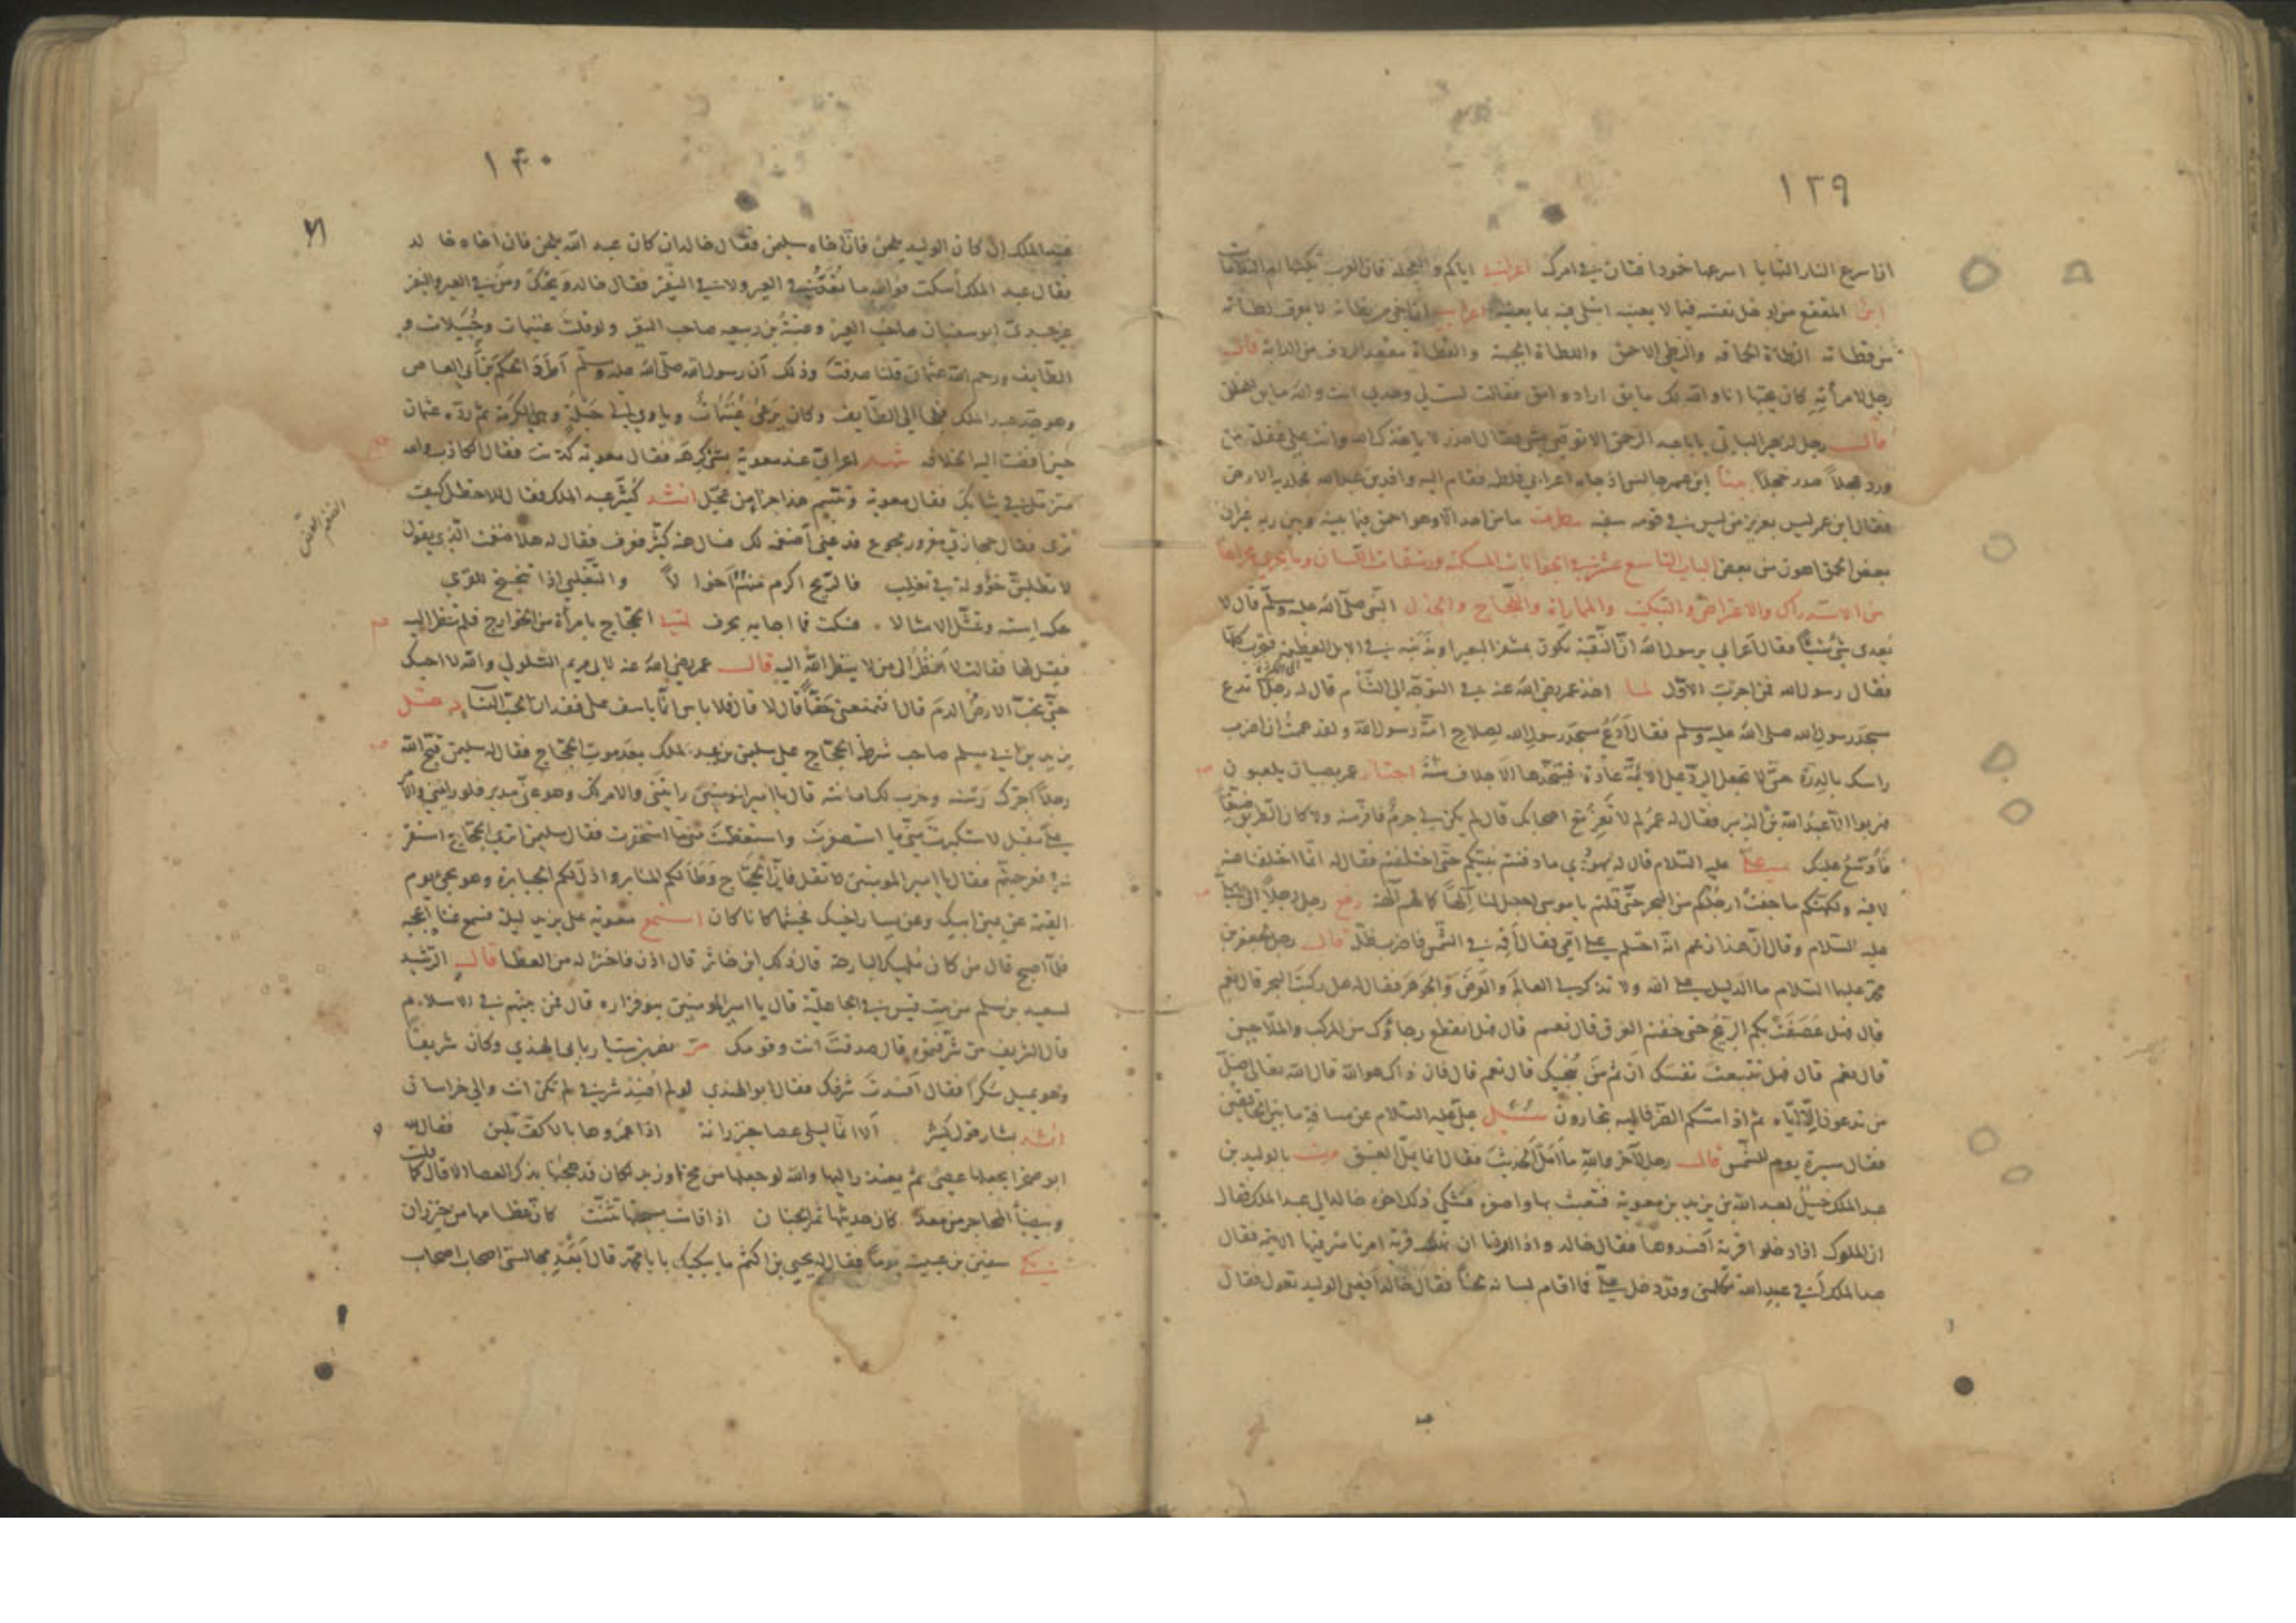 ١٣٩
ان اسرع النار التهابا اسرعها خمودا فتان في امرك اعرابي اياكم والعجلة فان العرب تكنيها ام الندامات
ابن المقفع من ادخل نفسه فيما لا يعنيه ابتلي فيه بما يعنيه اعرابي
من قطاته القطاة والقطاة مقعد الردف من الدابة قال
رجل لامرأته كان يحبها انا والله لك مايق اراد وامق فقالت لست لي وحدي انت والله مايق للخلق
قال رجل لزهير البابي يا با عبد الرحمن الا توصي بشي فقال احذر لا ياخذك الله وانت على غفلة من
ورد عجلا صدر خجلا بينا ابن عمر جالس اذ جاءه اعرابي فلطمه فقام اليه وافد بن عبد الله فجلد به الارض
فقال ابن عمر ليس بعزيز من ليس في قومه سفيه مطرف ما من احد الا وهو احمق فيما بينه وبين ربه غير ان
بعض الحمق اهون من بعض الباب التاسع عشر في الجوابات المسكتة ورشقات اللسان وما يجري مجراها
من الاستدراك والاعتراض والتبكيت والمماراة واللجاج والجدل النبي صلى الله عليه وسلم قال لا
يعدي شئ شيئا فقال اعرابي يرسول الله ان النقبة تكون بمشفر البعير او بذنبه في الابل العظيمة فتجرب كلها
فقال رسول الله فمن اجرب الاول لما اخذ عمر رضي الله عنه في التوجه الى الشأم قال له رجل تدع
مسجد رسول الله صلى الله عليه وسلم فقال ادع مسجد رسول الله لصلاح امة رسول الله ولقد هممت ان اضرب
راسك بالدرة حتى لا تجعل الرد على الائمة عادة فيتخذها الاجلاف سنة اجتاز عمر بصبيان يلعبون
فهربوا الا عبد الله بن الزبير فقال له عمر لم لا تفر مع اصحابك قال لم يكن لي جرم فافر منه ولا كان الطريق ضيقا
فاوسع عليك علي عليه السلام قال له يهودي ما دفنتم نبيكم حتى اختلفتم فقال له انما اختلفنا عنه
لا فيه ولكنكم ما جفت ارجلكم من البحر حتى قلتم يا موسى اجعل لنا الها كما لهم آلهة رفع رجل رجلا الى علي
عليه السلام وقال ان هذا زعم انه احتلم على امي فقال اقمه في الشمس فاضرب ظله قال رجل لجعفر بن
محمد عليهما السلام ما الدليل على الله ولا تذكر لي العالم والعرض والجوهر فقال له هل ركبت البحر قال نعم
قال فهل عصفت بكم الريح حتى خفتم الغرق قال نعم قال فهل انقطع رجاؤك من المركب والملاحين
قال نعم قال فهل تتبعت نفسك ان ثم من ينجيك قال نعم قال فان ذاك هو الله قال الله تعالى ضل
من تدعون الا اياه ثم اذا مسكم الضر فاليه تجارون سئل علي عليه السلام عن مسافة ما بين الخافقين
فقال مسيرة يوم للشمس قال رجل لآخر والله ما امل الحديث فقال انما يمل العتيق مرت بالوليد بن
عبد الملك خيل لعبد الله بن يزيد بن معوية فتعبث بها واصغره فشكي ذلك اخوه خالد الى عبد الملك فقال
ان الملوك اذا دخلوا قرية افسدوها فقال خالد واذا اردنا ان نهلك قرية امرنا مترفيها الاية فقال
عبد الملك أفي عبد الله تكلمني وقد دخل علي فما اقام لسانه لحنا فقال خالد افعلى الوليد تعول فقال
١٤٠
٧١
عبد الملك ان كان الوليد يلحن فان اخاه سليمن فقال خالد ان كان عبد الله يلحن فان اخاه خالد
فقال عبد الملك اسكت فوالله ما تعد في العير ولا في النفير فقال خالد ويحك ومن في العير والنفير
غيري جدي ابو سفيان صاحب العير وعتبة بن ربيعه صاحب النفير ولو قلت غنيمات وحبيلات و
الطايف ورحم الله عثمان قلنا صدقت وذلك ان رسول الله صلى الله عليه وسلم اطرد الحكم بن ابي العاص
وهو جد عبد الملك فلجأ الى الطايف وكان يرعى غنيمات وياوي الى حبلة وهي الكرمة ثم رده عثمان
حين افضت اليه الخلافه شهد اعرابي عند معوية بشئ كرهه فقال معوية كذبت فقال الكاذب والله
متزمل في ثيابك فقال معوية وتبسم هذا جزا من عجل انشد كثير عبد الملك فقال للاخطل كيف
ترى فقال حجازي مقرور مجوع فدعني اضغمه لك فسال عنه كثير فعرف فقال له هلا ضغمت الذي يقول
الضغم العض
لا تطلبن خؤولة في تغلب فالزنج اكرم منهم اخوالا والتغلبي اذا تنحنح للقرى
حك استه وتمثل الامثالا فسكت فما اجابه بحرف لقي الحجاج بامرأة من الخوارج فلم تنظر اليه
فقيل لها فقالت لا انظر الى من لا ينظر الله اليه قال عمر رضي الله عنه لابي مريم السلولي والله لا احبك
حتى تحب الارض الدم قال افتمنعني حقا قال لا قال فلا باس انما ياسف على فقدان المحب النسا دخل
يزيد بن ابي مسلم صاحب شرط الحجاج على سليمن بن عبد الملك بعد موت الحجاج فقال له سليمن قبح الله
رجلا اجرك رسنه وخرب لك امانته قال يا امير المومنين رايتني والامر لك وهو عني مدبر فلو رايتني والامر
علي مقبل لاستكبرت مني ما استصغرت واستعظمت مني ما استحقرت فقال سليمن اترى الحجاج استقر
في قعر جهنم فقال يا امير المومنين لا تقل فان الحجاج وطأ لكم المنابر واذل لكم الجبابرة وهو يجئ يوم
القيمة عن يمين ابيك وعن يسار اخيك فحيثما كانا كان استمع معوية على يزيد ليلة فسمع غنا اعجبه
فلما اصبح قال من كان ملهيك البارحة قال ذلك ابن خاثر قال اذن فاخثر له من العطا قال الرشيد
لسعيد بن سلم من بيت قيس في الجاهلية قال يا امير المومنين بنو فزاره قال فمن بيتهم في الاسلام
قال الشريف من شرفتموه قال صدقت انت وقومك مر نصر بن سيار بابي الهندي وكان شريفا
وهو يميل سكرا فقال افسدت شرفك فقال ابو الهندي لو لم افسد شرفي لم تكن انت والي خراسان
انشد بشار قول كثير الا انما ليلى عصا خيزرانة اذا غمزوها بالاكف تلين فقال لله
ابو صخر يجعلها عصى ثم يعتذر اليها والله لو جعلها من مخ او زبد لكان قد هجنها بذكر العصا الا قال كما قلت
وبيضأ المحاجر من معد كان حديثها ثمر الجنان اذا قامت لسبحتها تثنت كان عظامها من خيزران
سفين بن عيينة يوما فقال له يحيى بن اكثم ما يبكيك يا با محمد قال ابعد مجالستي اصحاب اصحاب